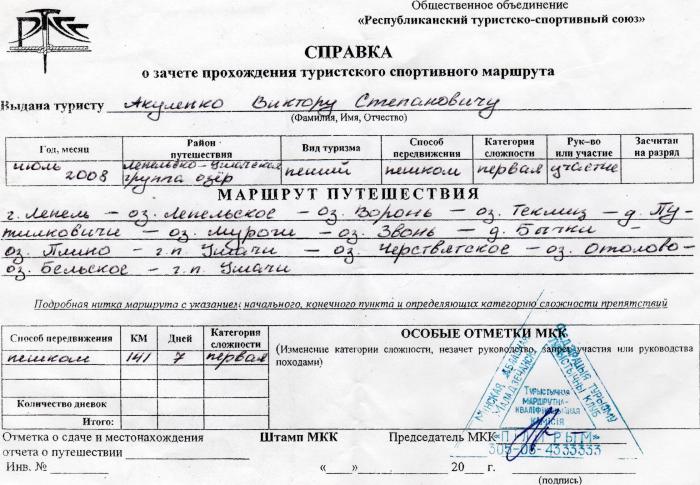 РТСС
Общественное объединение
«Республиканский туристско-спортивный союз»
СПРАВКА
о зачете прохождения туристского спортивного маршрута
Выдана туристу Акуленко Виктору Степановичу
(Фамилия, Имя, Отчество)
Год, месяц Район путешествия Вид туризма Способ передвижения Категория сложности Рук–во или участие Засчитан на разряд
июль 2008 Лепельско-Ушачская группа озёр пеший пешком первая участие
МАРШРУТ ПУТЕШЕСТВИЯ
г. Лепель – оз. Лепельское – оз. Воронь – оз. Теклиц – д. Пу-
тилковичи – оз. Мурочи – оз. Звонь – д. Бычки –
оз. Плино – г.п. Ушачи – оз. Черствятское – оз. Отолово –
оз. Бельское – г.п. Ушачи
Подробная нитка маршрута с указанием начального, конечного пункта и определяющих категорию сложности препятствий
Способ передвижения КМ Дней Категория сложности
пешком 141 7 первая
Количество дневок
Итого:
ОСОБЫЕ ОТМЕТКИ МКК
(Изменение категории сложности, незачет руководство, запрет участия или руководства
походами)
ФЕДЭРАЦЫЯ ТУРЫЗМУ
ТУРЫСТЫЧНЫ КЛУБ
Турыстычная
маршрутна-
кваліфікацыйная
камісія
«ПІЛІГРЫМ»
305-06-4333333
Отметка о сдаче и местонахождения
отчета о путешествии
Инв. №
Штамп МКК Председатель МКК
«___» 20__ г.
(подпись)